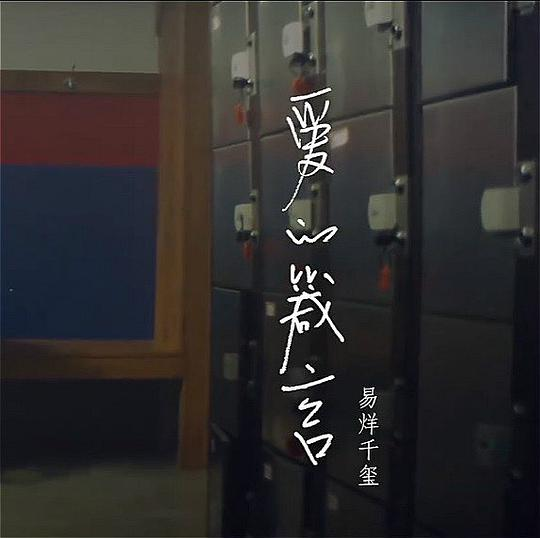 爱的箴言
易烊千玺